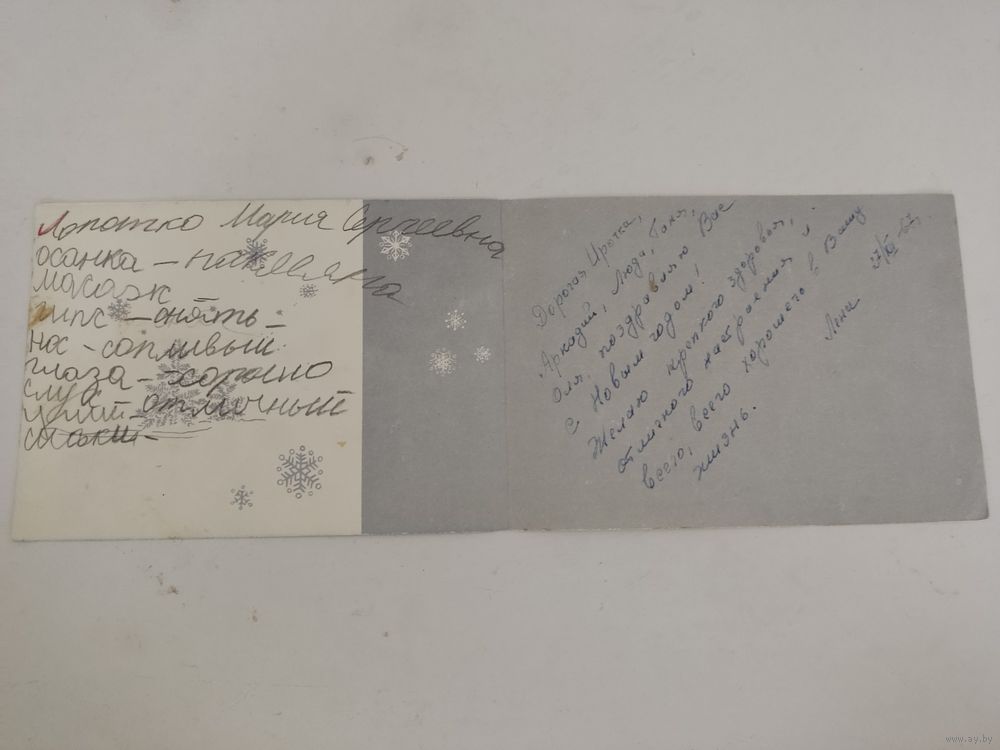 Лопатко Мария Сергеевна
осанка –
массаж
гипс – снять –
нос – сопливый
глаза – хорошо
слух
отличный
Дорогая Ирочка,
Аркадий, Люда, Таня,
Оля, поздравляю Вас
С Новым годом!
Желаю крепкого здоровья,
отличного настроения и
всего, всего хорошего в Вашу
жизнь.
Лена
27/XII 67г.
www.ay.by